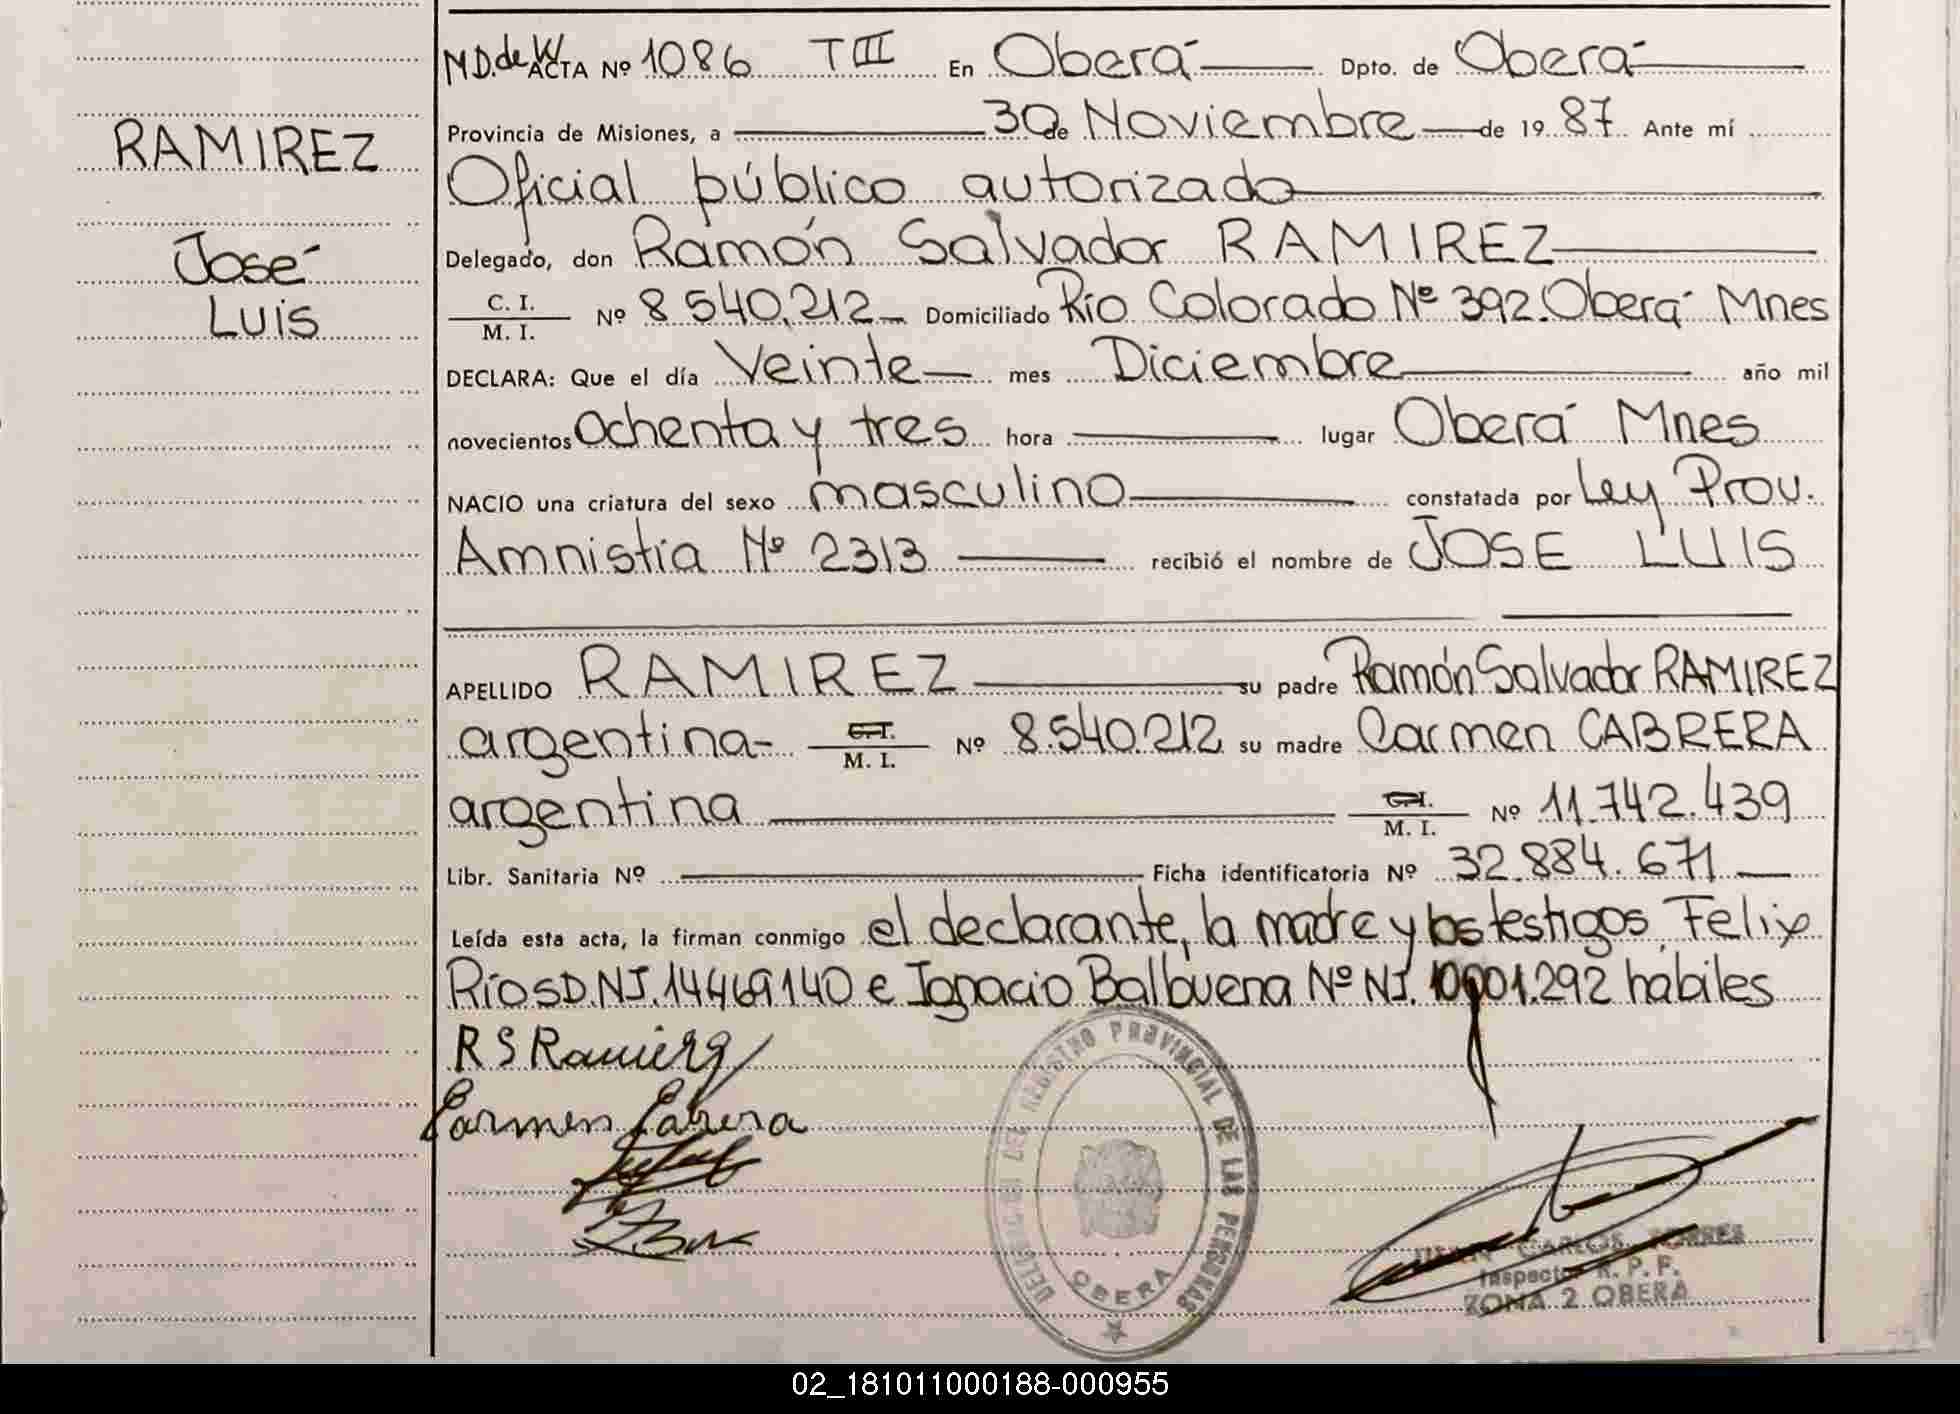 M.D. de W. ACTA Nº 1086 T III En Oberá Dpto. de Oberá
Provincia de Misiones, a 30 de Noviembre de 19 87 Ante mí
Oficial público autorizado
RAMIREZ
José
Luis
Delegado, don Ramón Salvador RAMIREZ
C. I. / M. I. Nº 8.540.212 Domiciliado Río Colorado Nº 392. Oberá Mnes
DECLARA: Que el día Veinte mes Diciembre año mil
novecientos Ochenta y tres hora lugar Oberá Mnes
NACIO una criatura del sexo masculino constatada por Ley Prov.
Amnistía Nº 2313 recibió el nombre de JOSE LUIS
APELLIDO RAMIREZ su padre Ramón Salvador RAMIREZ
argentina C. I. / M. I. Nº 8.540.212 su madre Carmen CABRERA
argentina C. I. / M. I. Nº 11.742.439
Libr. Sanitaria Nº Ficha identificatoria Nº 32.884.671
Leída esta acta, la firman conmigo el declarante, la madre y los testigos Felix
Ríos D.N.I. 14469140 e Ignacio Balbuena Nº N.I. 10901.292 hábiles
R S Ramirez
Carmen Cabrera
DELEGACION DEL REGISTRO PROVINCIAL DE LAS PERSONAS
OBERA
CARLOS TORRES
Inspector R. P. P.
ZONA 2 OBERA
02_181011000188-000955